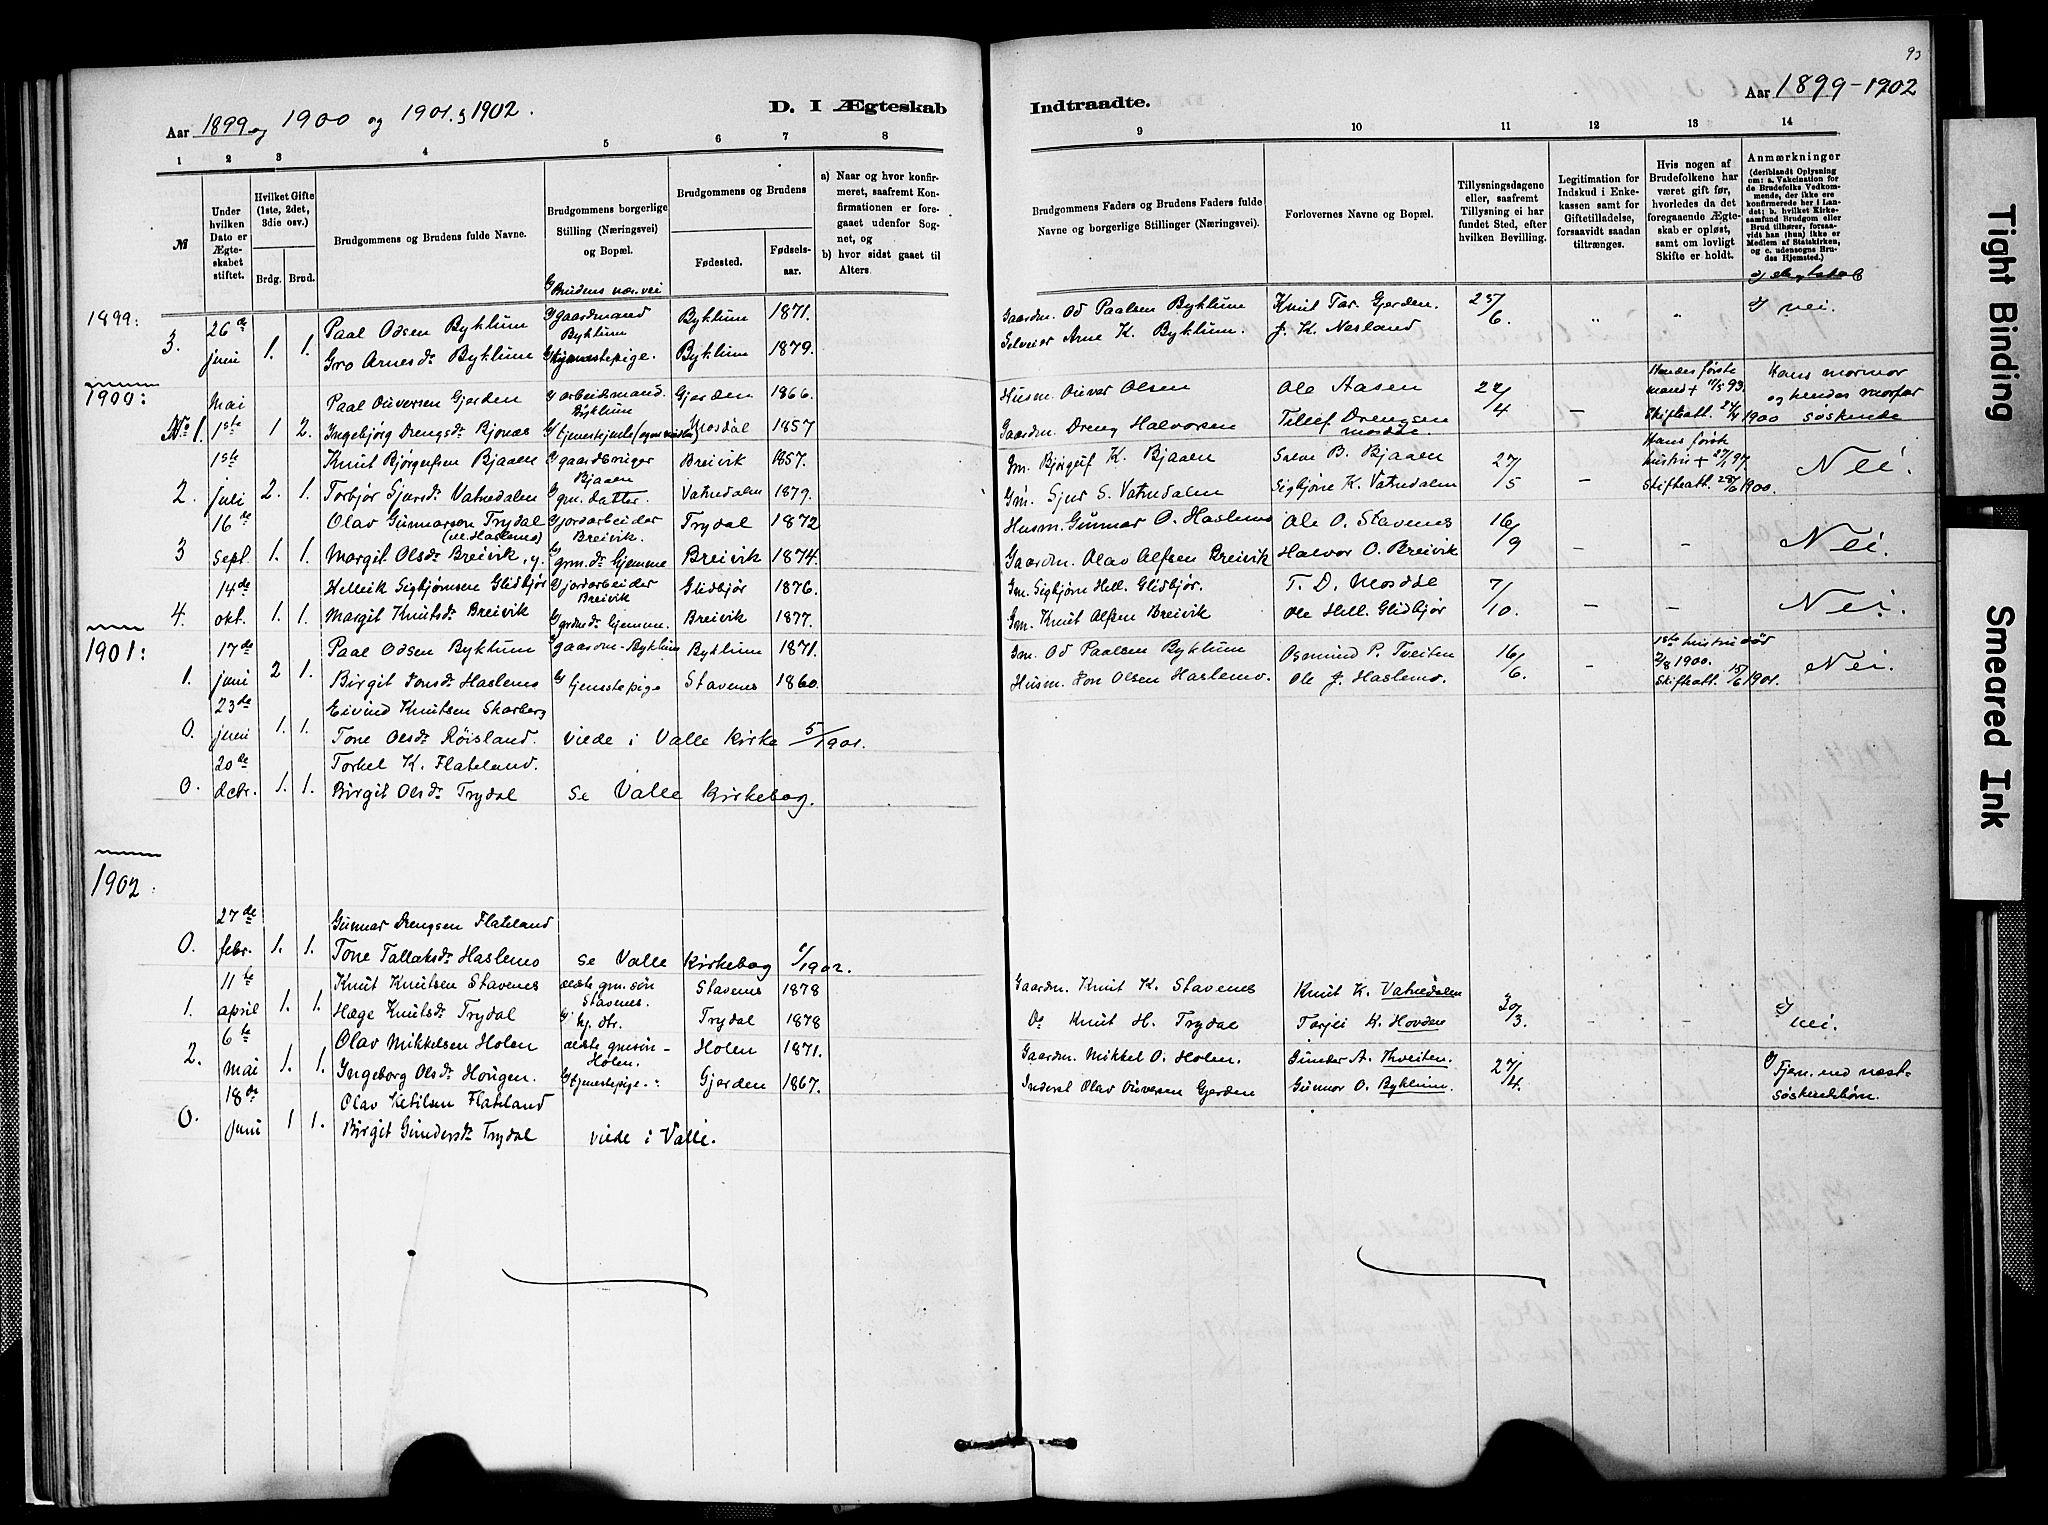 93
Aar 1899 og 1900 og 1901. og 1902.
D. I Ægteskab
Indtraadte.
Aar 1899-1902
1 2 3 4 5 6 7 8
9 10 11 12 13 14
№
Under hvilken Dato er Ægteskabet stiftet.
Hvilket Gifte (1ste, 2det, 3die osv.)
Brdg. Brud.
Brudgommens og Brudens fulde Navne.
Brudgommens borgerlige Stilling (Næringsvei) og Bopæl.
Brudens nær.vei
Brudgommens og Brudens
Fødested. Fødselsaar.
a) Naar og hvor konfirmeret, saafremt Konfirmationen er foregaaet udenfor Sognet, og
b) hvor sidst gaaet til Alters.
Brudgommens Faders og Brudens Faders fulde Navne og borgerlige Stillinger (Næringsvei).
Forlovernes Navne og Bopæl.
Tillysningsdagene eller, saafremt Tillysning ei har fundet Sted, efter hvilken Bevilling.
Legitimation for Indskud i Enkekassen samt for Giftetilladelse, forsaavidt saadan tiltrænges.
Hvis nogen af Brudefolkene har været gift før, hvorledes da det foregaaende Ægteskab er opløst, samt om lovligt Skifte er holdt.
Anmærkninger
(deriblandt Oplysning om: a. Vakcination for de Brudefolks Vedkommende, der ikke ere konfirmerede her i Landet; b. hvilket Kirkesamfund Brudgom eller Brud tilhører, forsaavidt han (hun) ikke er Medlem af Statskirken, og c. udensogns Brudes Hjemsted.)
1899:
3. 26de juni 1. 1. Paal Odsen Byklum gaardmand Byklum Byklum 1871. Gaardm. Od Paalsen Byklum Knut Tar. Gjerden. 25/6. " " nei.
Gro Arnesdr Byklum tjenestepige. Byklum 1879. Selveier Arne K. Byklum. J. K. Nesland
1900:
No 1. Mai 1ste 1 2. Paal Ouversen Gjerden arbeidsmand. Byklum Gjerden 1866. Husm. Ouver Olsen Ole Aasen 22/4 – Hendes første mand + 11/5 93. Skifteatt. 1900 Hans mormor og hendes morfar søskende
Ingebjørg Drengsdr Bjones Mosdal 1857 Gaardm. Dreng Halvorsen Tellef Drengsen Mosdøl.
2. 1ste juli 2. 1. Knut Bjørgufsen Bjaaen gaardbruger Bjaaen Breivik 1857. Gm. Bjørguf K. Bjaaen Sveve B. Bjaaen 27/5 – Hans første hustru + 27/1 97. Skifteatt. 28/6 1900. Nei.
Torbjør Sjursdr Vatnedalen gm. datter. Vatnedalen 1879. Gm. Sjur S. Vatnedalen Sigbjørn K. Vatnedalen
3 16de Sept. 1. 1. Olav Gunnarson Trydal (el. Haslemo) jordarbeider Breivik. Trydal 1872 Husm. Gunnar O. Haslemo Ole O. Stavenes 16/9 – – Nei.
Margit Olsdr Breivik, y. grm.dr hjemme Breivik 1874. Gaardm. Olav Alfsen Breivik Halvor O. Breivik
4. 14de okt. 1. 1. Hellvik Sigbjørnsen Glidbjør jordarbeider Breivik Glidbjør 1876. Gm. Sigbjørn Hell. Glidbjør. T. D. Mosdøl 7/10. – – Nei.
Margit Knutsdr Breivik hjemme. Breivik 1877. Gm. Knut Alfsen Breivik Ole Hell. Glidbjør
1901:
1. 17de juni 2 1. Paal Odsen Byklum gaardm. Byklum Byklum 1871. Gm. Od Paalsen Byklum Osmund P. Tveiten 16/6. – 1ste hustru død 2/8 1900. Skifteatt. 15/6 1901. Nei.
Birgit Jonsdr Haslemo tjenestepige Stavenes 1860. Husm. Jon Olsen Haslemo. Ole J. Haslemo.
0. 23de juni 1. 1. Eivind Knutsen Skarberg
Tone Olsdr Røisland. viede i Valle kirke 5/1901.
0. 20de decbr. 1. 1. Torkel K. Flateland.
Birgit Olsdr Trydal se Valle Kirkebog.
1902:
0. 27de febr. 1. 1. Gunnar Drengsen Flateland
Tone Tallaksdr Haslemo se Valle Kirkebog 1/1902.
1. 11te april 1. 1. Knut Knutsen Stavenes ældste gm.søn Stavenes. Stavenes 1878 Gaardm. Knut K. Stavenes Knut K. Vatnedalen 30/3. – – nei.
Hæge Knutsdr Trydal hj. dtr. Trydal 1878 Do Knut H. Trydal Tarjei K. Hovden
2. 6te Mai 1. 1. Olav Mikkelsen Holen ældste gmsøn – Holen. Holen 1871. Gaardm. Mikkel O. Holen. Gunder A. Thveiten. 27/4. Fjern. end næst-søskendebørn.
Ingeborg Olsdr Hougen. tjenestepige. Gjerden 1867. Inderst Olav Ouversen Gjerden Gunnar O. Byklum.
0. 18de juni 1 1. Olav Ketilsen Flateland
Birgit Gundersdr Trydal viede i Valle.
Tight Binding
Smeared Ink